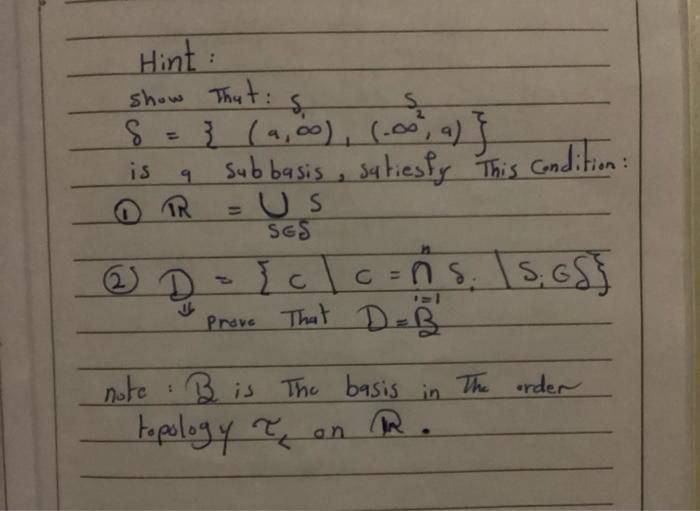 Hint :
show That : S₁ S₂
S = { (a, ∞), (-∞, a) }
is a subbasis, satiesfy This Condition :
① ℝ = ⋃_{S∈S} S
② D = { c | c = ⋂_{i=1}^{n} Sᵢ | Sᵢ ∈ S}
⇓ Prove That D = B
note : B is The basis in The order
topology τ_< on ℝ .